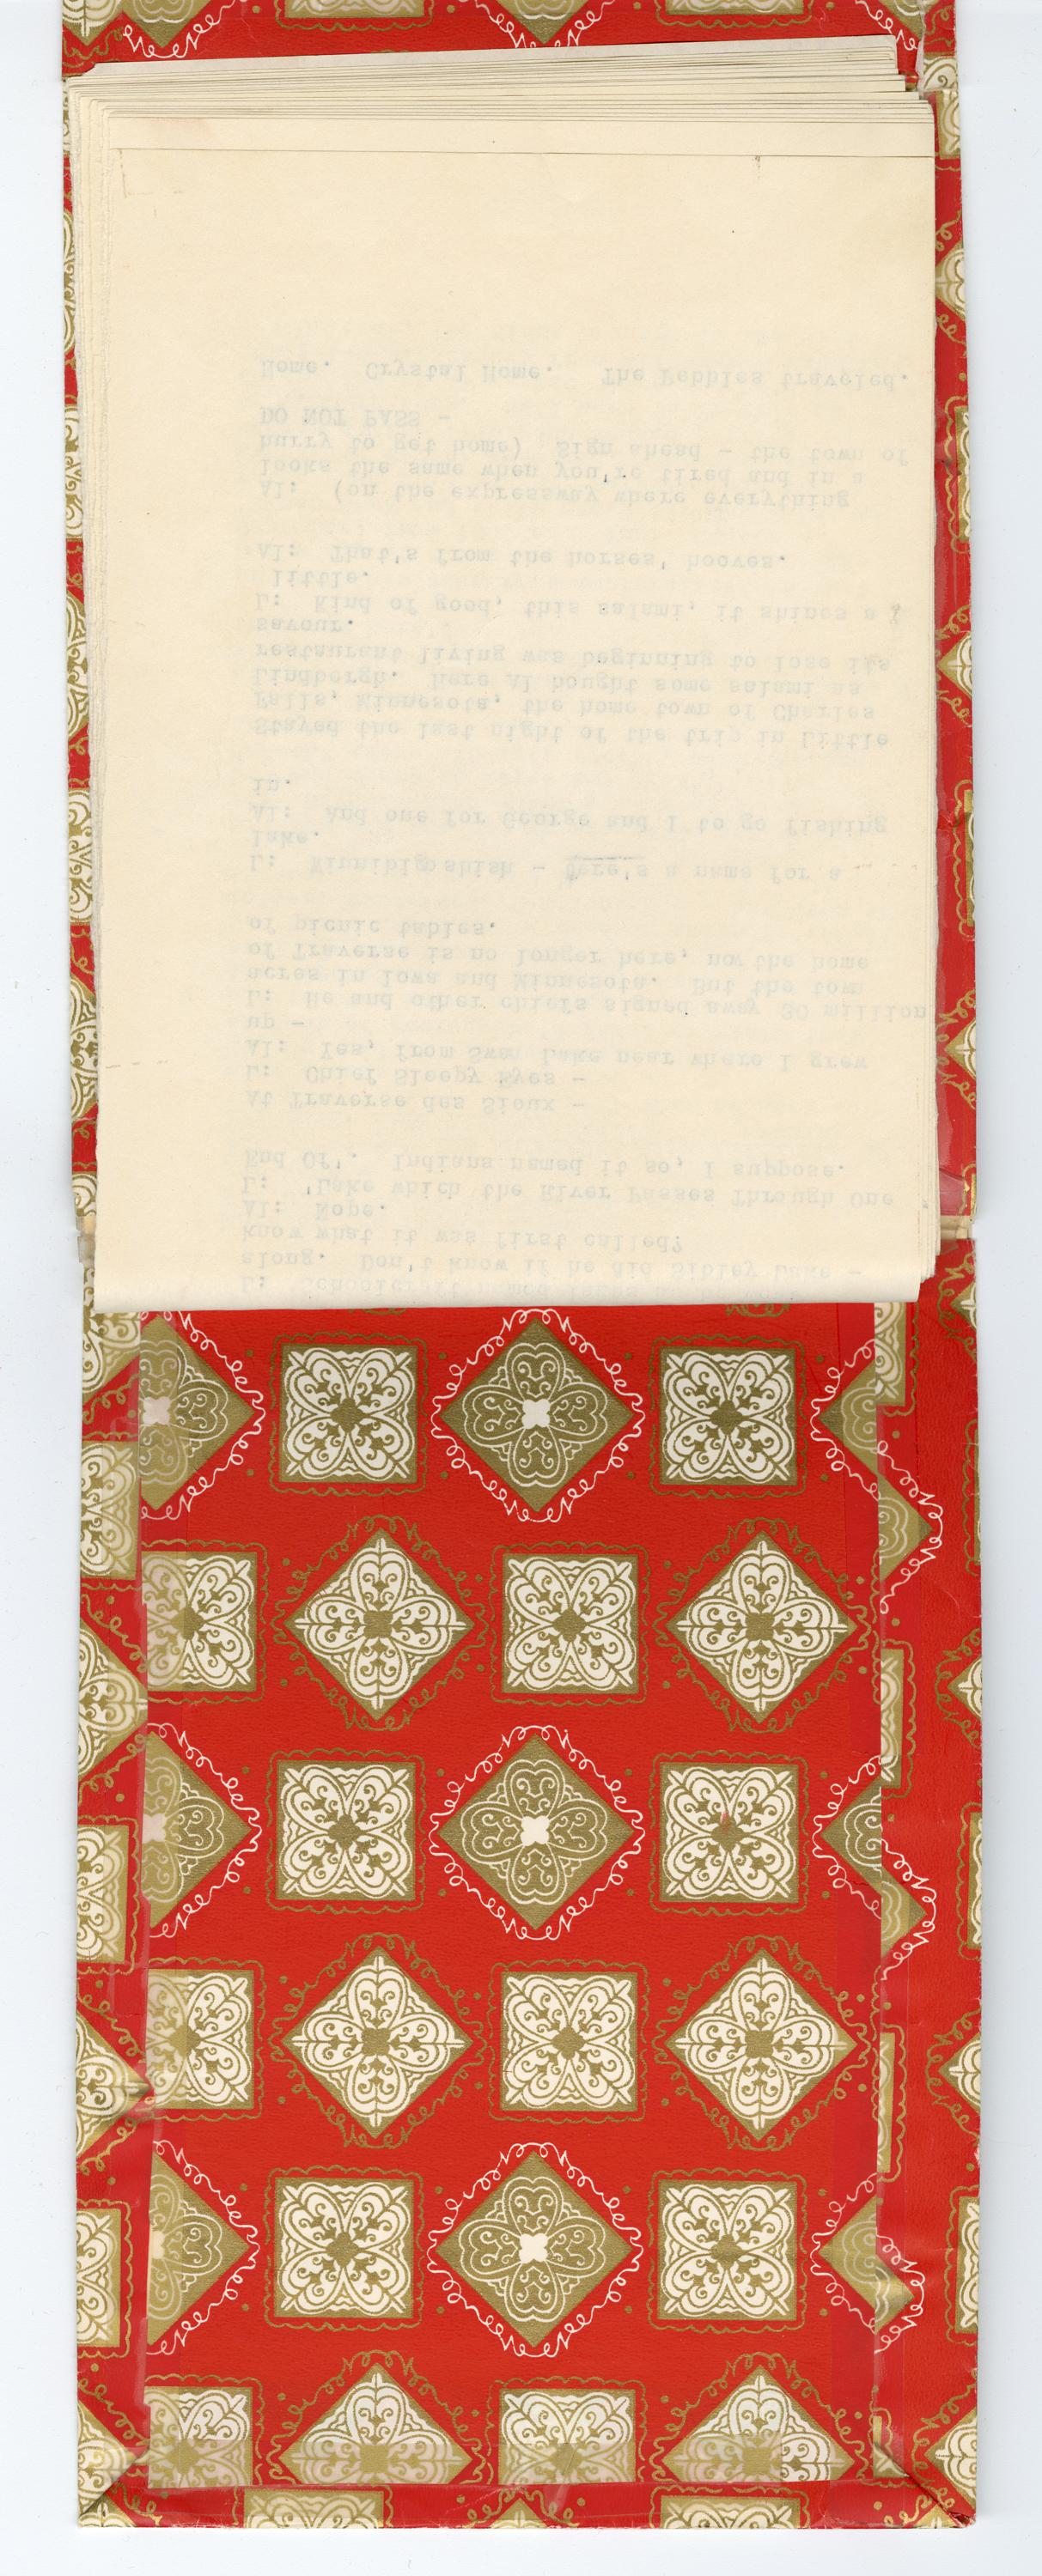 L: Schoolcraft named
along. Don't know if he did Sibley Lake -
know what it was first called?
Al: Nope.
L: 'Lake which the River Passes Through One
End Of'. Indians named it so, I suppose.
At Traverse des Sioux -
L: Chief Sleepy Eyes -
Al: Yes, from Swan Lake near where I grew
up -
L: He and other chiefs signed away 30 million
acres in Iowa and Minnesota. But the town
of Traverse is no longer here, now the home
of picnic tables.
L: Winnibigoshish - here's a name for a
lake.
Al: And one for George and I to go fishing
in.
Stayed the last night of the trip in Little
Falls, Minnesota, the home town of Charles
Lindbergh. Here Al bought some salami as
restaurant living was beginning to lose its
savour.
L: Kind of good, this salami, it shines a
little.
Al: That's from the horses' hooves.
Al: (on the expressway where everything
looks the same when you're tired and in a
hurry to get home) Sign ahead - the town of
DO NOT PASS -
Home. Crystal Home. The Pebbles traveled.